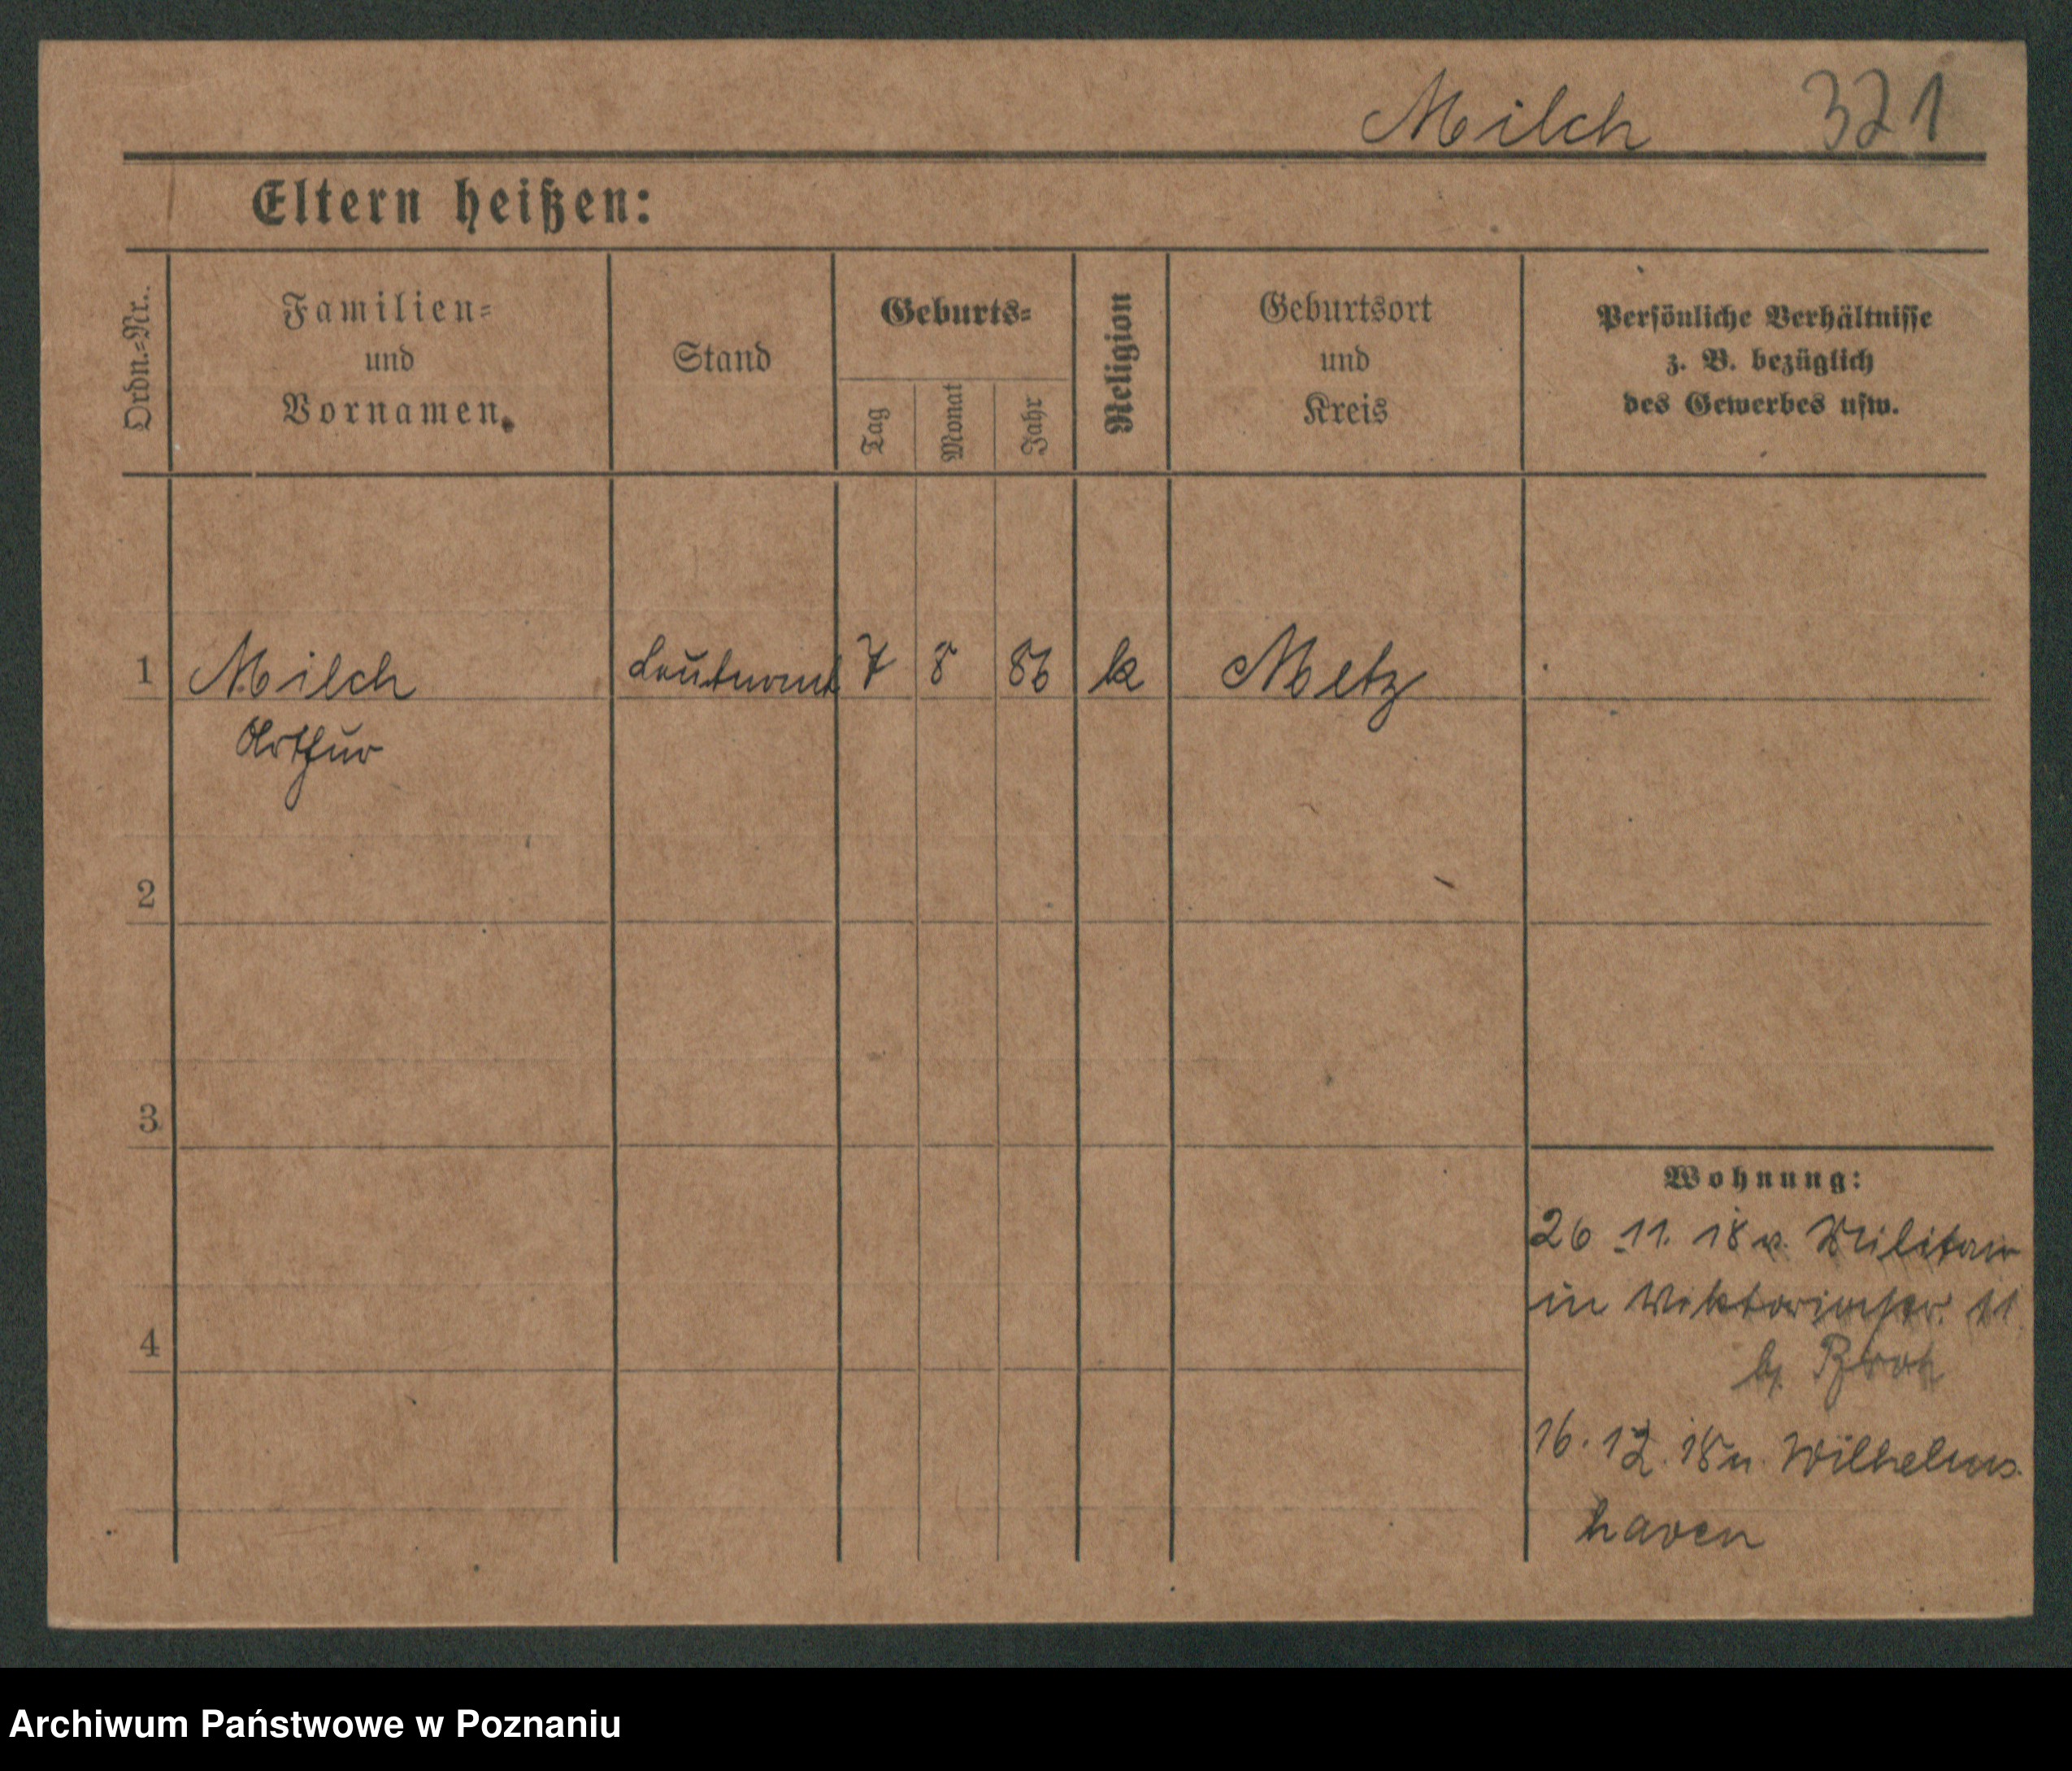 Milch 321
Eltern heißen:
Ordn.=Nr.
Familien=
und
Vornamen.
Stand
Geburts=
Tag
Monat
Jahr
Religion
Geburtsort
und
Kreis
Persönliche Verhältnisse
z. B. bezüglich
des Gewerbes usw.
1 Milch Leutnant 7 8 86 k Metz
Arthur
2
3
4
Wohnung:
26 11. 18 v. Militär
in Viktoriastr. 11
b.
16. 12. 18 n. Wilhelms
haven
Archiwum Państwowe w Poznaniu